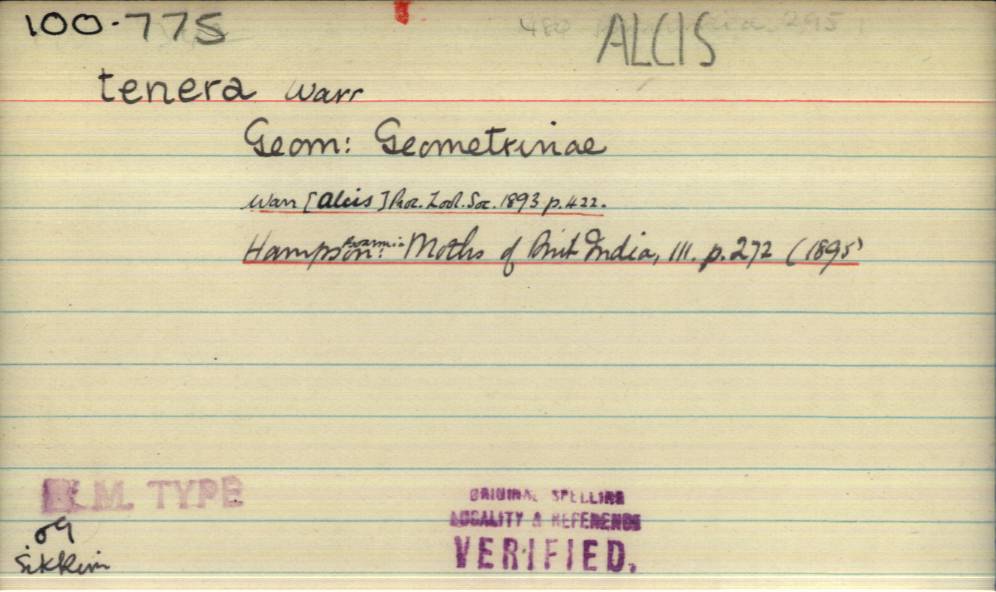 100.775
ALCIS
tenera Warr
Geom: Geometrinae
Warr [Alcis] Proc. Zool. Soc. 1893 p. 422.
Hampson: Boarmia Moths of Brit India, III. p. 272 (1895)
B.M. TYPE
ORIGINAL SPELLING
LOCALITY & REFERENCE
VERIFIED.
Sikkim